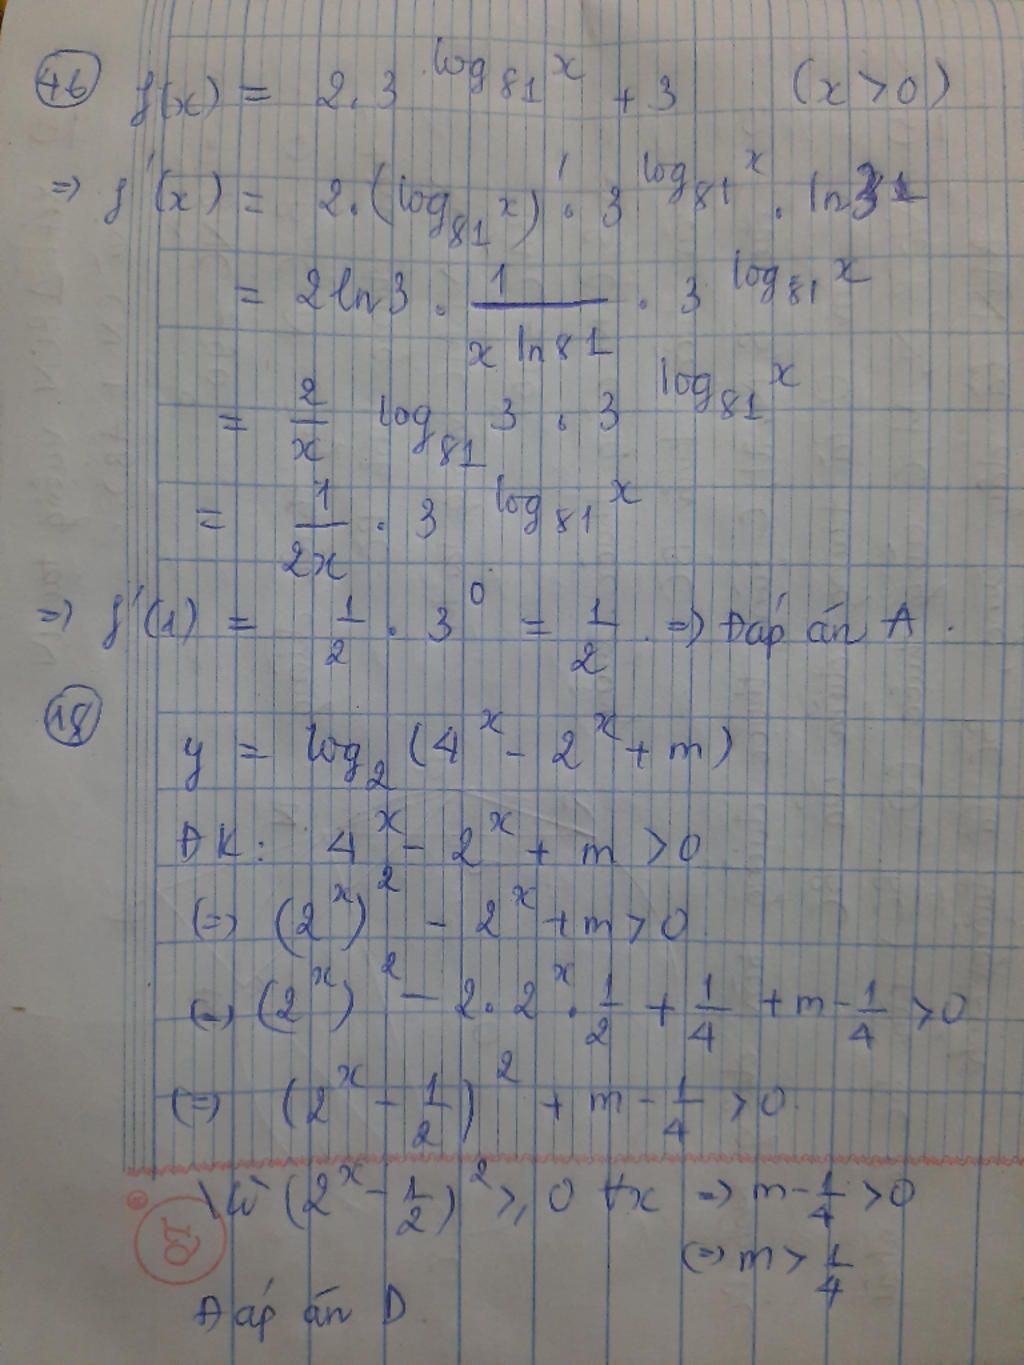 46 f(x) = 2.3^{log_{81} x} + 3 (x > 0)
=> f'(x) = 2.(log_{81} x)' . 3^{log_{81} x} . ln3
= 2ln3 . \frac{1}{x ln 81} . 3^{log_{81} x}
= \frac{2}{x} log_{81} 3 . 3^{log_{81} x}
= \frac{1}{2x} . 3^{log_{81} x}
=> f'(1) = \frac{1}{2} . 3^0 = \frac{1}{2} . => Đáp án A .
18
y = log_2 (4^x - 2^x + m)
ĐK: 4^x - 2^x + m > 0
(=) (2^x)^2 - 2^x + m > 0
(=) (2^x)^2 - 2.2^x . \frac{1}{2} + \frac{1}{4} + m - \frac{1}{4} > 0
(=) (2^x - \frac{1}{2})^2 + m - \frac{1}{4} > 0.
Vì (2^x - \frac{1}{2})^2 ≥ 0 ∀x => m - \frac{1}{4} > 0
(=> m > \frac{1}{4}
Đáp án D